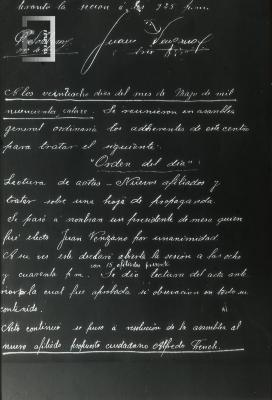 levanto la secion a las 9.25 p.m.
Juan
A los veintiocho dias del mes de Mayo de mil
novecientos catorce. Se reunieron en asamblea
general ordinaria los adherentes de este centro
para tratar el siguiente:
"Orden del dia":
Lectura de actas - Nuevos afiliados y
tratar sobre una hoja de propaganda.
Se pasó a nombrar un presidente de mesa quien
fué electo Juan Venzano por unanimidad
A su vez este declaró abierta la sesión a las ocho
con 15 afiliados presente
y cuarenta p.m. Se dió lectura del acta ante
rior la cual fue aprobada si observacion en todo su
contenido.
Acto continuo se puso á resolución de la asamblea al
nuevo afiliado propuesto ciudadano Alfredo French.